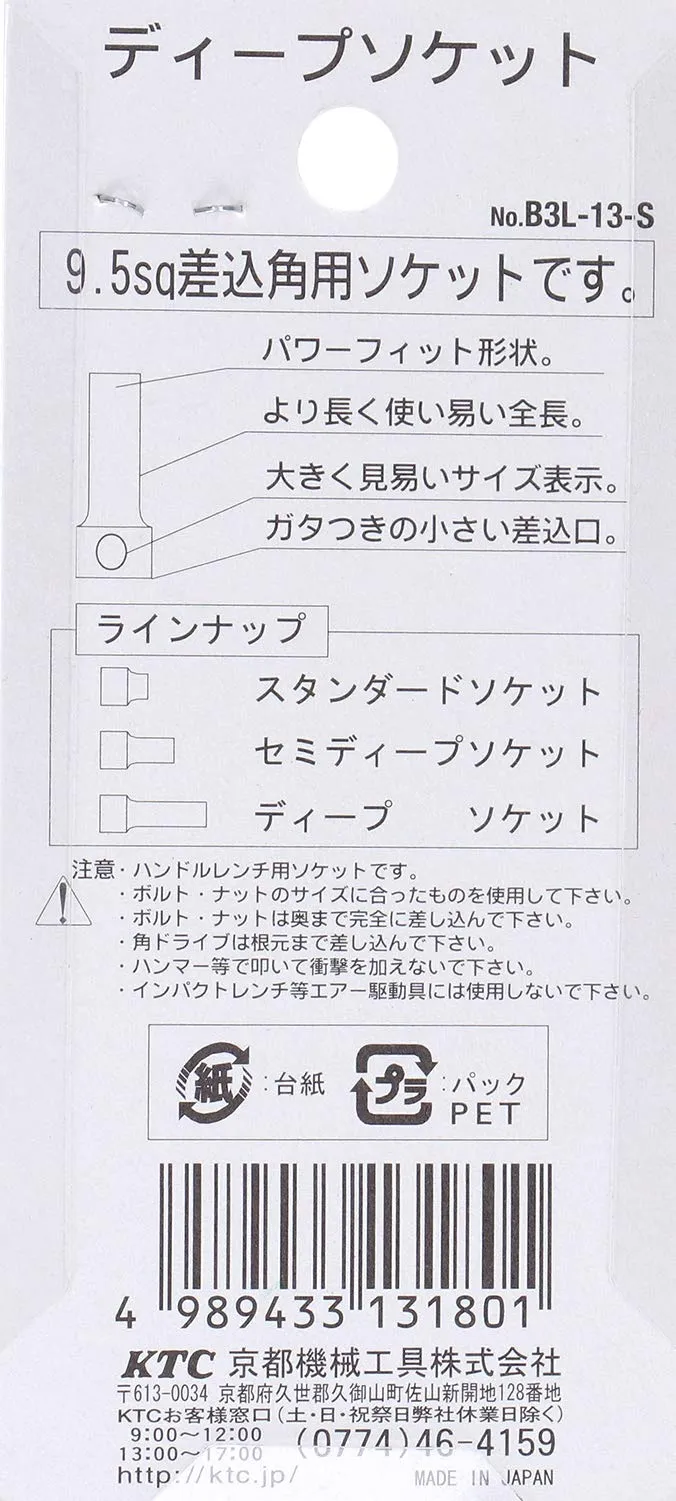 ディープソケット
No.B3L-13-S
9.5sq差込角用ソケットです。
パワーフィット形状。
より長く使い易い全長。
大きく見易いサイズ表示。
ガタつきの小さい差込口。
ラインナップ
スタンダードソケット
セミディープソケット
ディープ ソケット
注意・ハンドルレンチ用ソケットです。
・ボルト・ナットのサイズに合ったものを使用して下さい。
・ボルト・ナットは奥まで完全に差し込んで下さい。
・角ドライブは根元まで差し込んで下さい。
・ハンマー等で叩いて衝撃を加えないで下さい。
・インパクトレンチ等エアー駆動具には使用しないで下さい。
紙:台紙 プラ:パック
PET
4 989433 131801
KTC 京都機械工具株式会社
〒613-0034 京都府久世郡久御山町佐山新開地128番地
KTCお客様窓口(土・日・祝祭日弊社休業日除く)
9:00〜12:00
13:00〜17:00 (0774)46-4159
http://ktc.jp/ MADE IN JAPAN